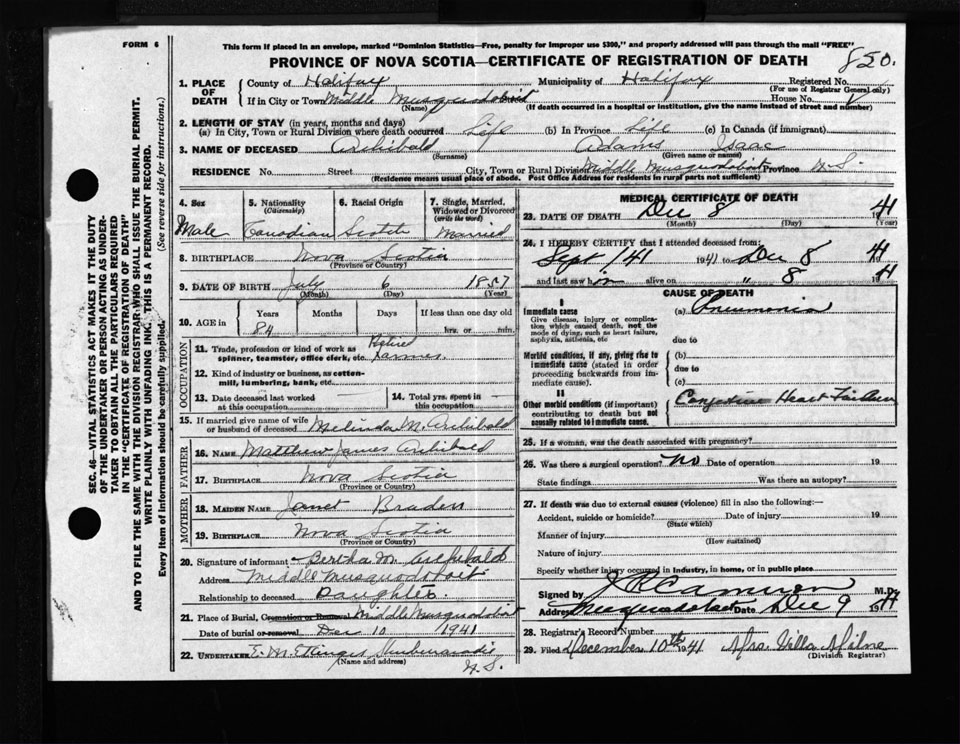 FORM 6
This form if placed in an envelope, marked "Dominion Statistics—Free, penalty for improper use $300," and properly addressed will pass through the mail "FREE"
PROVINCE OF NOVA SCOTIA—CERTIFICATE OF REGISTRATION OF DEATH
850.
1. PLACE OF DEATH
County of Halifax Municipality of Halifax Registered No.
(For use of Registrar General only)
If in City or Town Middle Musquodoboit House No.
(Name) (If death occurred in a hospital or institution, give the name instead of street and number)
2. LENGTH OF STAY (in years, months and days)
(a) In City, Town or Rural Division where death occurred Life (b) In Province Life (c) In Canada (if immigrant)
3. NAME OF DECEASED Archibald Adams Isaac
(Surname) (Given name or names)
RESIDENCE No. Street City, Town or Rural Division Middle Musquodoboit Province N.S.
(Residence means usual place of abode. Post Office Address for residents in rural parts not sufficient)
4. Sex
Male
5. Nationality
(Citizenship)
Canadian
6. Racial Origin
Scotch
7. Single, Married, Widowed or Divorced
(write the word)
Married
8. BIRTHPLACE Nova Scotia
(Province or Country)
9. DATE OF BIRTH July 6 1857
(Month) (Day) (Year)
10. AGE in
Years Months Days If less than one day old
84 hrs. or min.
OCCUPATION
11. Trade, profession or kind of work as spinner, teamster, office clerk, etc. Retired Farmer
12. Kind of industry or business, as cotton-mill, lumbering, bank, etc.
13. Date deceased last worked at this occupation
14. Total yrs. spent in this occupation
15. If married give name of wife or husband of deceased Melinda M. Archibald
FATHER
16. NAME Matthew James Archibald
17. BIRTHPLACE Nova Scotia
(Province or Country)
MOTHER
18. MAIDEN NAME Janet Braden
19. BIRTHPLACE Nova Scotia
(Province or Country)
20. Signature of informant Bertha M. Archibald
Address Middle Musquodoboit
Relationship to deceased Daughter
21. Place of Burial, Cremation or Removal Middle Musquodoboit
Date of burial or removal Dec 10 1941
22. UNDERTAKER E. M. Ettinger
(Name and address)
N.S.
MEDICAL CERTIFICATE OF DEATH
23. DATE OF DEATH Dec 8 41
(Month) (Day) (Year)
24. I HEREBY CERTIFY that I attended deceased from:
Sept 1/41 1941 to Dec 8 41
and last saw him alive on " 8 41
CAUSE OF DEATH
I
Immediate cause
Give disease, injury or complication which caused death, not the mode of dying, such as heart failure, asphyxia, asthenia, etc
(a) Pneumonia
due to
Morbid conditions, if any, giving rise to immediate cause (stated in order proceeding backwards from immediate cause).
(b)
due to
(c)
II
Other morbid conditions (if important) contributing to death but not causally related to immediate cause.
Congestive Heart Failure
25. If a woman, was the death associated with pregnancy?
26. Was there a surgical operation? No Date of operation 19
State findings Was there an autopsy?
27. If death was due to external causes (violence) fill in also the following:—
Accident, suicide or homicide? Date of injury 19
(State which)
Manner of injury
(How sustained)
Nature of injury
Specify whether injury occurred in industry, in home, or in public place
Signed by M.D.
Address Musquodoboit Date Dec 9 1941
28. Registrar's Record Number
29. Filed December 10th 1941 Mrs. Villa Milne
(Division Registrar)
SEC. 46—VITAL STATISTICS ACT MAKES IT THE DUTY
OF THE UNDERTAKER OR PERSON ACTING AS UNDER-
TAKER TO OBTAIN ALL THE PARTICULARS REQUIRED
IN THE "CERTIFICATE OF REGISTRATION OF DEATH"
AND TO FILE THE SAME WITH THE DIVISION REGISTRAR WHO SHALL ISSUE THE BURIAL PERMIT.
WRITE PLAINLY WITH UNFADING INK. THIS IS A PERMANENT RECORD.
Every item of information should be carefully supplied. (See reverse side for instructions.)